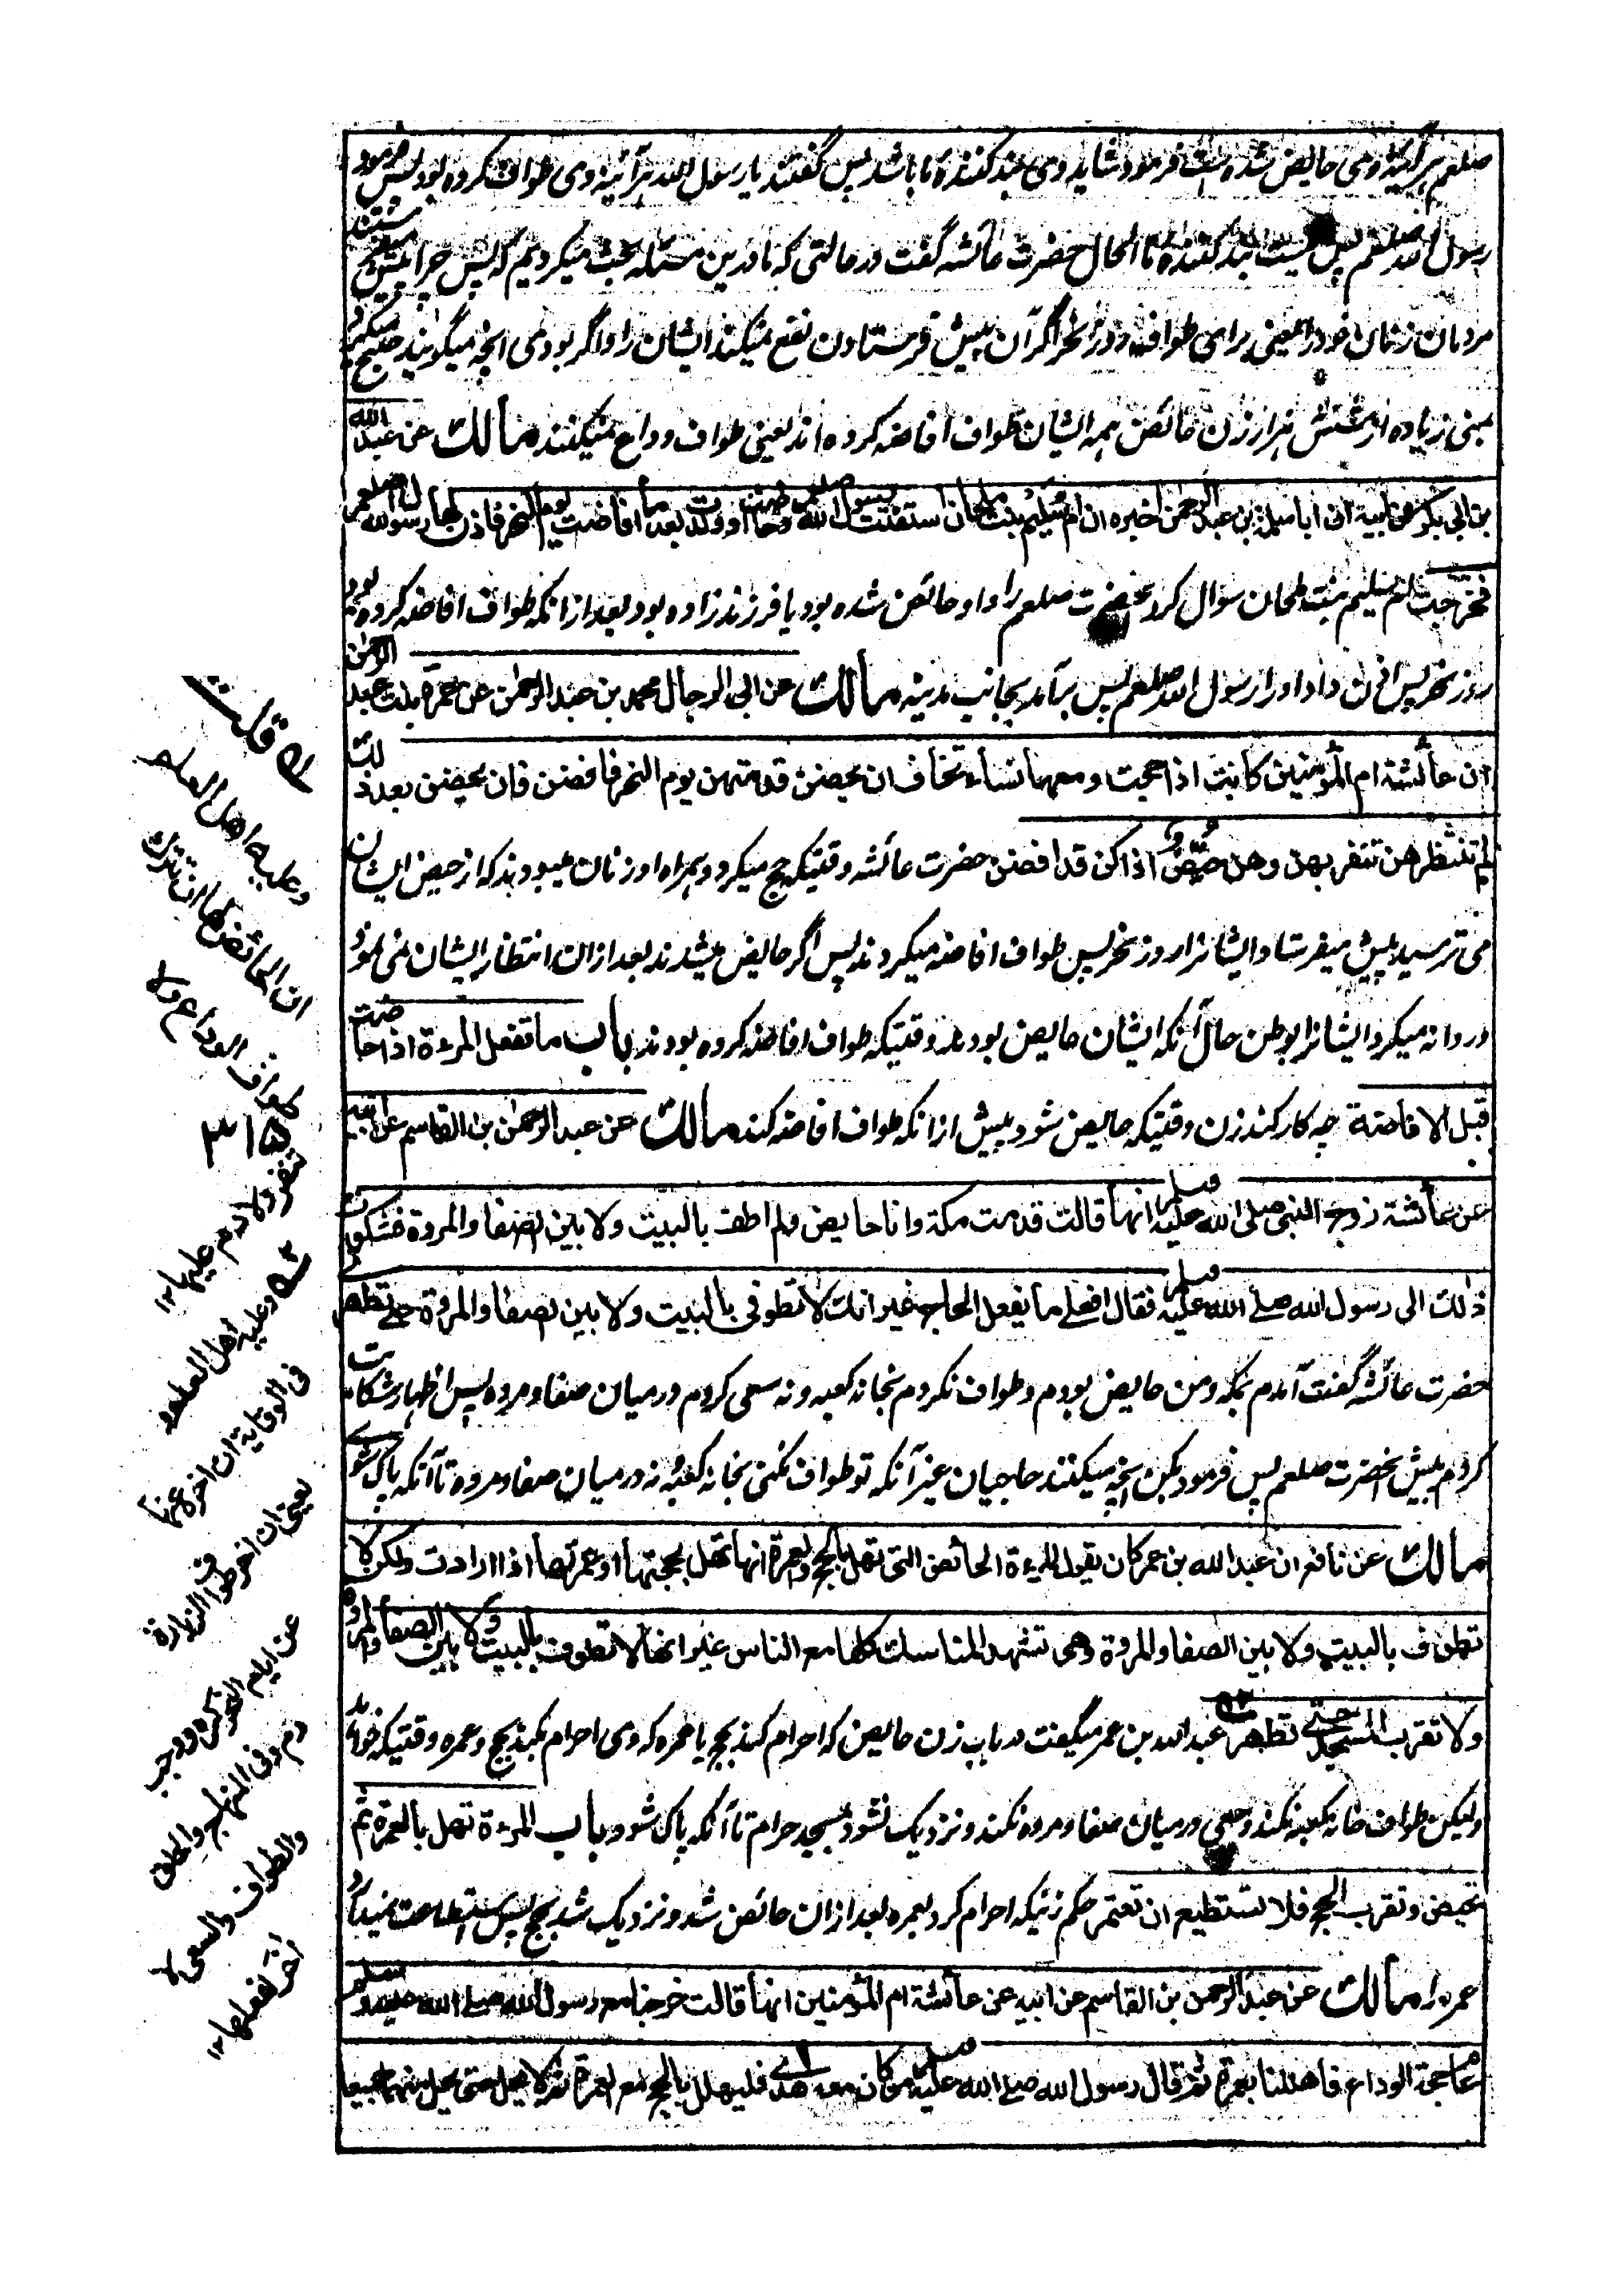 صلعم هر آئینه وی حایض شده است فرمود شاید وی بند کننده ما باشد پس گفتند یا رسول الله هر آئینه وی طواف کرده بود پس فرمود
رسول الله صلعم پس نیست بند کننده ما الحال حضرت عائشه گفت در حالتی که ما درین مسئله بحث میکردیم که پس چرا پیش میفرستند
مردمان زنان خود را یعنی برای طواف روز نحر اگر آن پیش فرستادن نفع نمیکند ایشان را و اگر بودی انچه میگویند صحیح
بمنی زیاده از شش هزار زن حائض همه ایشان طواف افاضه کرده اند یعنی طواف وداع نمیکنند مالك عن عبد الله
بن ابی بکر عن ابیه ان ابا سلمة بن عبد الرحمن اخبره ان ام سلیم بنت ملحان استفتت رسول الله صلعم وحاضت او ولدت بعد ما افاضت یوم النحر فاذن لها رسول الله صلعم
فخرجت ام سلیم بنت ملحان سوال کرد آنحضرت صلعم را و او حائض شده بود یا فرزند زاده بود بعد از انکه طواف افاضه کرده بود
روز نحر پس اذن داد او را رسول الله صلعم پس برآمد بجانب مدینه مالك عن ابی الرجال محمد بن عبد الرحمن عن عمرة بنت عبد الرحمن
ان عائشة ام المؤمنین کانت اذا حجت ومعها نساء تخاف ان یحضن قدمتهن یوم النحر فافضن فان یحضن بعد ذلك
لم تنتظرهن تنفر بهن وهن حیض اذا کن قد افضن حضرت عائشه وقتیکه حج میکرد و همراه او زنان میبودند که از حیض ایشان
می ترسید پیش میفرستاد ایشانرا روز نحر پس طواف افاضه میکردند پس اگر حایض میشدند بعد ازان انتظار ایشان نمی نمود
و روانه میکرد ایشانرا بوطن حال آنکه ایشان حایض بودند وقتیکه طواف افاضه کرده بودند باب ما تفعل المرءة اذا حاضت
قبل الافاضة چه کار کند زن وقتیکه حایض شود پیش ازانکه طواف افاضه کند مالك عن عبد الرحمن بن القاسم عن ابیه
عن عائشة زوجة النبی صلی الله علیه وسلم انها قالت قدمت مکة وانا حایض ولم اطف بالبیت ولا بین الصفا والمروة فشکوت
ذلك الی رسول الله صلی الله علیه وسلم فقال افعلی ما یفعل الحاج غیر انك لا تطوفی بالبیت ولا بین الصفا والمروة حتی تطهری
حضرت عائشه گفت آمدم بمکه و من حایض بودم و طواف نکردم بخانه کعبه و نه سعی کردم درمیان صفا و مروه پس اظهار شکایت
کردم پیش آنحضرت صلعم پس فرمود بکن آنچه میکنند حاجیان غیر آنکه تو طواف نکنی بخانه کعبه و نه درمیان صفا و مروه تا آنکه پاک شوی
مالك عن نافع ان عبد الله بن عمر کان یقول المرءة الحائض التی تهل بالحج او العمرة انها تهل بحجتها او عمرتها اذا ارادت ولکن لا
تطوف بالبیت ولا بین الصفا والمروة وهی تشهد المناسك کلها مع الناس غیر انها لا تطوف بالبیت ولا بین الصفا والمروة
ولا تقرب المسجد حتی تطهر عبد الله بن عمر میگفت در باب زن حایض که احرام کند بحج یا عمره که وی احرام بکند بحج و عمره وقتیکه خواهد
ولیکن طواف خانه کعبه نکند و سعی درمیان صفا و مروه نکند و نزدیک نشود بمسجد حرام تا آنکه پاک شود باب المرءة تهل بالعمرة ثم
تحیض وتقرب الحج فلا تستطیع ان تعتمر حکم زنیکه احرام کرد بعمره بعد ازان حائض شد و نزدیک شد بحج پس استطاعت نمیدارد
عمره را مالك عن عبد الرحمن بن القاسم عن ابیه عن عائشة ام المؤمنین انها قالت خرجنا مع رسول الله صلی الله علیه وسلم
عام حجة الوداع فاهللنا بعمرة ثم قال رسول الله صلی الله علیه وسلم من کان معه هدی فلیهلل بالحج مع العمرة ثم لا یحل حتی یحل منهما جمیعا
قلت
وعلیه اهل العلم
ان الحائض لها ان تترك
طواف الوداع ولا
تنفر ولا دم علیها ۱۲
وعلیه اهل العلم و
فی الوقایة ان اخره عنها
یعنی ان اخر طواف الزیارة
عن ایام النحر کره ووجب
دم وفی المنهاج والحلق
والطواف والسعی لا
اخر لفعلها ۱۲